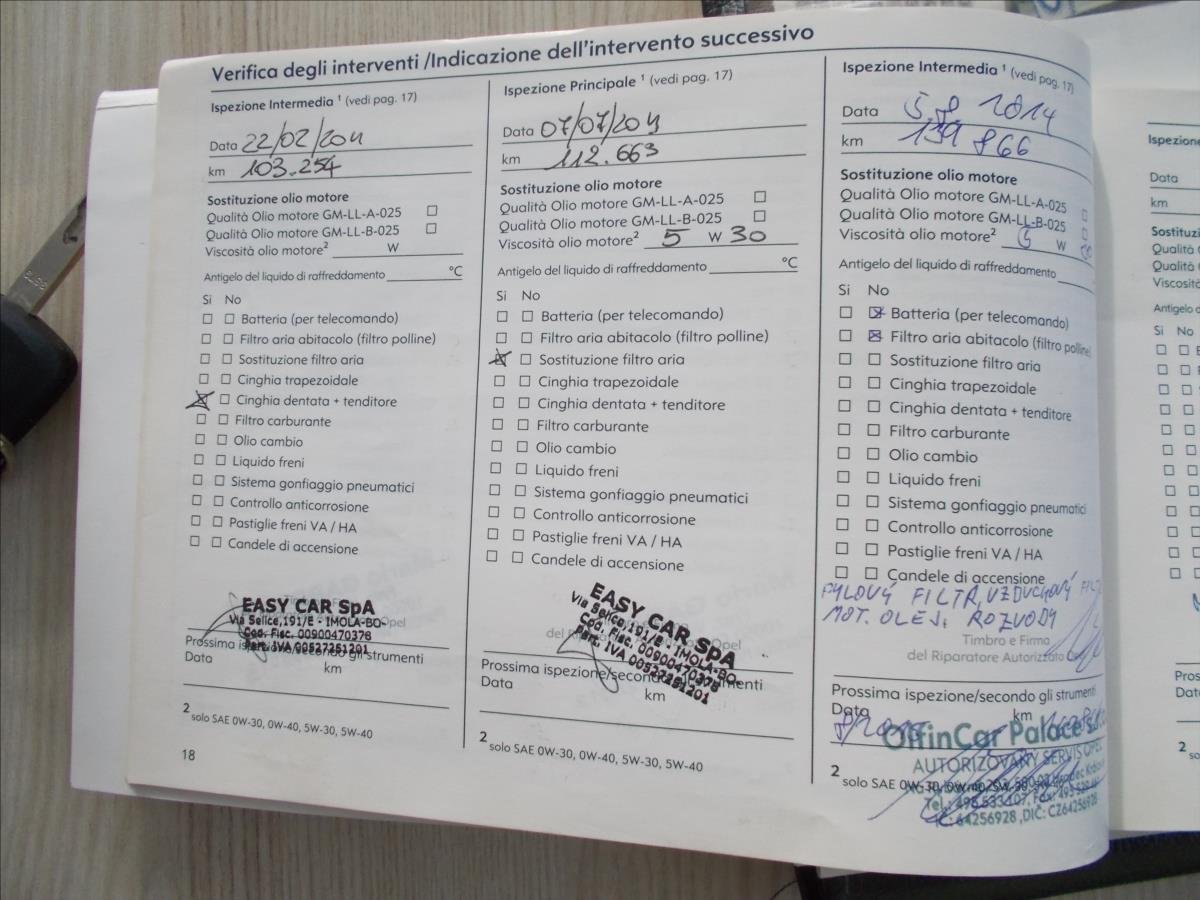 Verifica degli interventi /Indicazione dell'intervento successivo
Ispezione Intermedia ¹ (vedi pag. 17)
Data 22/02/2011
km 103.254
Sostituzione olio motore
Qualità Olio motore GM-LL-A-025 ☐
Qualità Olio motore GM-LL-B-025 ☐
Viscosità olio motore² W
Antigelo del liquido di raffreddamento °C
Si No
☐ ☐ Batteria (per telecomando)
☐ ☐ Filtro aria abitacolo (filtro polline)
☐ ☐ Sostituzione filtro aria
☐ ☐ Cinghia trapezoidale
☒ ☐ Cinghia dentata + tenditore
☐ ☐ Filtro carburante
☐ ☐ Olio cambio
☐ ☐ Liquido freni
☐ ☐ Sistema gonfiaggio pneumatici
☐ ☐ Controllo anticorrosione
☐ ☐ Pastiglie freni VA / HA
☐ ☐ Candele di accensione
EASY CAR SpA
Via Selice,191/E - IMOLA-BO- Opel
Cod. Fisc. 00900470378
Part. IVA 00527251201
Prossima ispezione/secondo gli strumenti
Data km
2 solo SAE 0W-30, 0W-40, 5W-30, 5W-40
18
Ispezione Principale ¹ (vedi pag. 17)
Data 07/07/2011
km 112.663
Sostituzione olio motore
Qualità Olio motore GM-LL-A-025 ☐
Qualità Olio motore GM-LL-B-025 ☐
Viscosità olio motore² 5 W 30
Antigelo del liquido di raffreddamento °C
Si No
☐ ☐ Batteria (per telecomando)
☐ ☐ Filtro aria abitacolo (filtro polline)
☒ ☐ Sostituzione filtro aria
☐ ☐ Cinghia trapezoidale
☐ ☐ Cinghia dentata + tenditore
☐ ☐ Filtro carburante
☐ ☐ Olio cambio
☐ ☐ Liquido freni
☐ ☐ Sistema gonfiaggio pneumatici
☐ ☐ Controllo anticorrosione
☐ ☐ Pastiglie freni VA / HA
☐ ☐ Candele di accensione
EASY CAR SpA
Via Selice,191/E - IMOLA-BO-
Cod. Fisc. 00900470378
Part. IVA 00527251201
Prossima ispezione/secondo gli strumenti
Data km
2 solo SAE 0W-30, 0W-40, 5W-30, 5W-40
Ispezione Intermedia ¹ (vedi pag. 17)
Data 5.8 2014
km 139 866
Sostituzione olio motore
Qualità Olio motore GM-LL-A-025 ☐
Qualità Olio motore GM-LL-B-025 ☐
Viscosità olio motore² 5 W 30
Antigelo del liquido di raffreddamento
Si No
☐ ☒ Batteria (per telecomando)
☐ ☒ Filtro aria abitacolo (filtro polline)
☐ ☐ Sostituzione filtro aria
☐ ☐ Cinghia trapezoidale
☐ ☐ Cinghia dentata + tenditore
☐ ☐ Filtro carburante
☐ ☐ Olio cambio
☐ ☐ Liquido freni
☐ ☐ Sistema gonfiaggio pneumatici
☐ ☐ Controllo anticorrosione
☐ ☐ Pastiglie freni VA / HA
☐ ☐ Candele di accensione
PYLOVÝ FILTR, VZDUCHOVÝ FILTR
MOT. OLEJ. ROZVODY
Timbro e Firma
del Riparatore Autorizzato
Prossima ispezione/secondo gli strumenti
Data km
OlfinCar Palace s.r.o.
AUTORIZOVANÝ SERVIS OPEL
2 solo SAE 0W-30, 0W-40, 5W-30,
Tel.: 495 533 107, Fax: 495
IČ: 64256928 ,DIČ: CZ64256928
Ispezione
Data
km
Qualità
Qualità
Viscosità
Si No